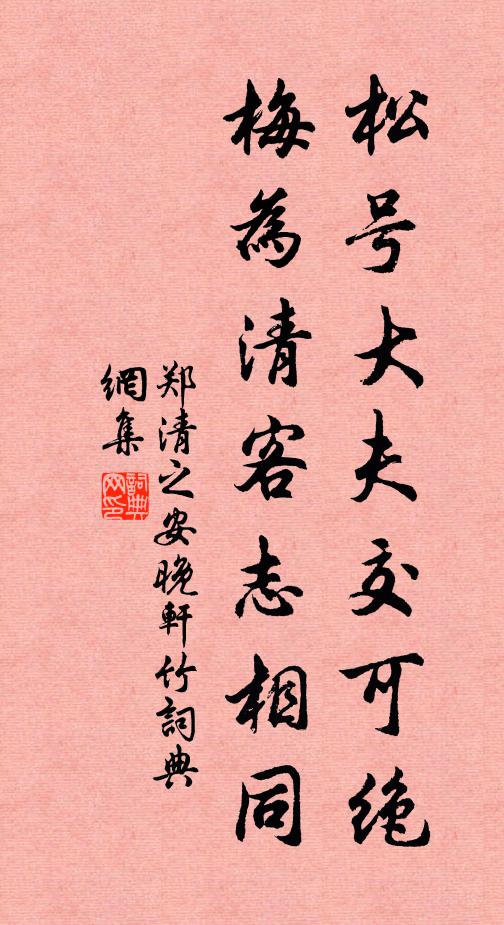 松号大夫交可绝
梅為清客志相同
郑清之安晚軒竹詞典
網集
詞典
网印